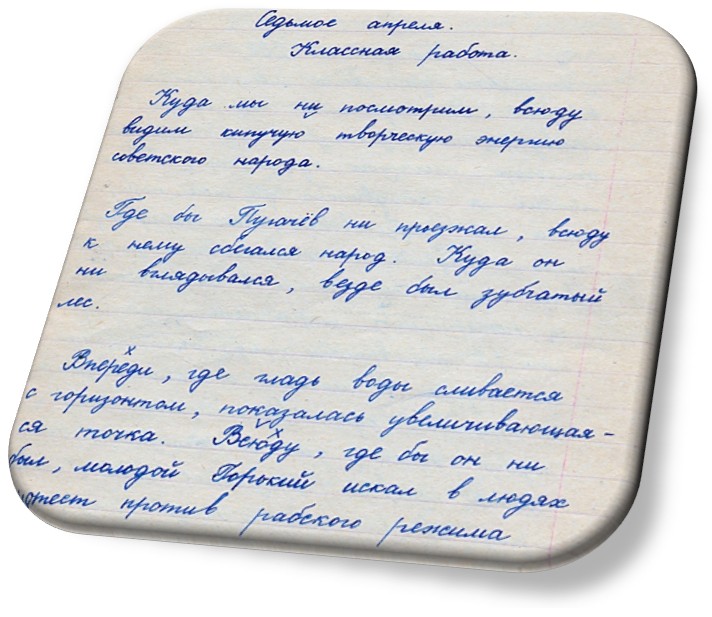 Седьмое апреля.
Классная работа.
Куда мы ни посмотрим, всюду
видим кипучую творческую энергию
советского народа.
Где бы Пугачёв ни проезжал, всюду
к нему сбегался народ. Куда он
ни вглядывался, везде был зубчатый
лес.
Впереди, где гладь воды сливается
с горизонтом, показалась увеличивающая-
ся точка. Всюду, где бы он ни
был, молодой Горький искал в людях
протест против рабского режима